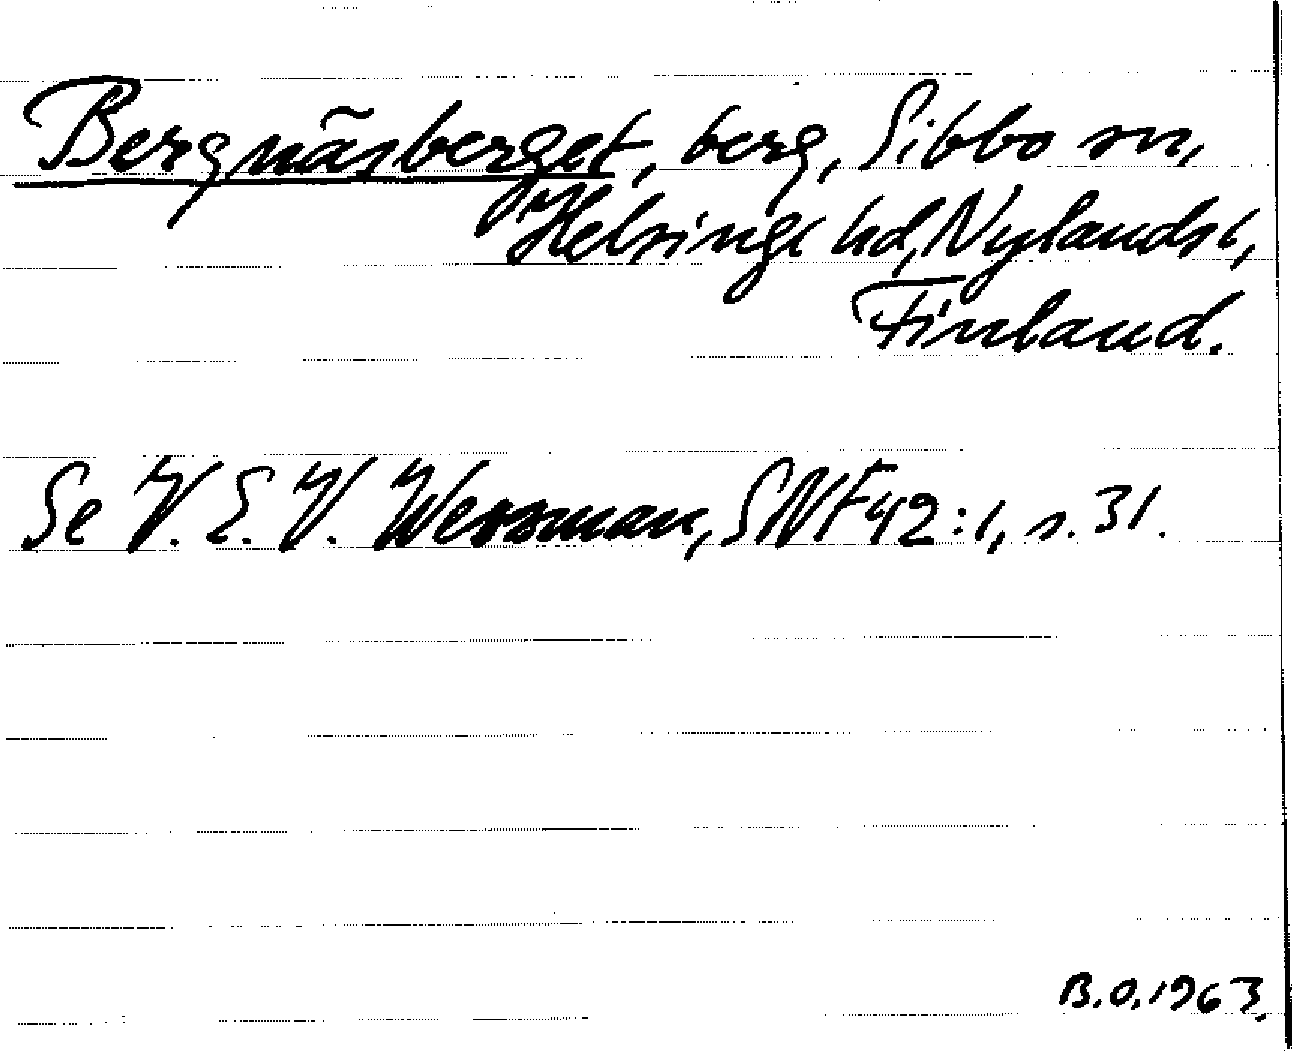 Bergnäsberget, berg, Sibbo sn,
Helsinge hd, Nylands l,
Finland.
Se V. E. V. Wessman, SNF 42:1, s. 31.
B.O. 1963.